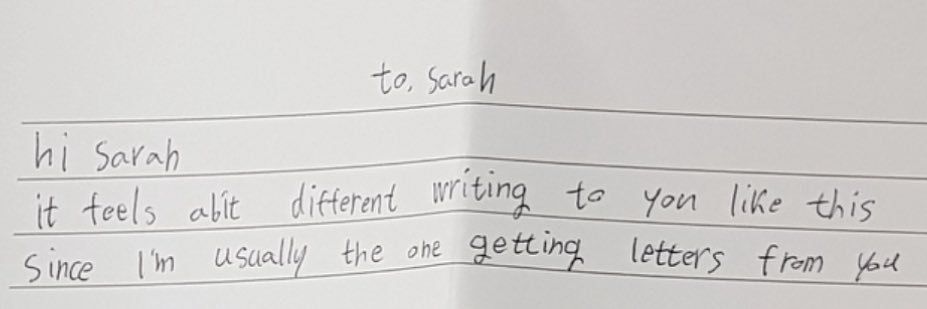 to, Sarah
hi Sarah
it feels abit different writing to you like this
Since I'm usually the one getting letters from you